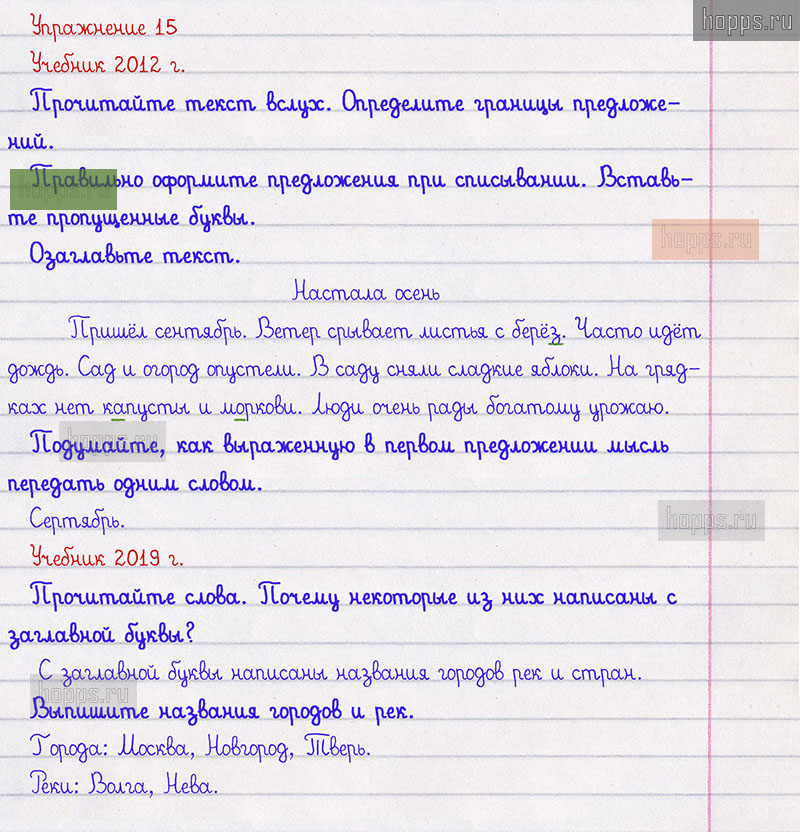 hopps.ru
Упражнение 15
Учебник 2012 г.
Прочитайте текст вслух. Определите границы предложе-
ний.
Правильно оформите предложения при списывании. Вставь-
hopps.ru
те пропущенные буквы.
hopps.ru
Озаглавьте текст.
Настала осень
Пришёл сентябрь. Ветер срывает листья с берёз. Часто идёт
дождь. Сад и огород опустели. В саду сняли сладкие яблоки. На гряд-
ках нет капусты и моркови. Люди очень рады богатому урожаю.
hopps.ru
Подумайте, как выраженную в первом предложении мысль
передать одним словом.
Сертябрь.
hopps.ru
Учебник 2019 г.
Прочитайте слова. Почему некоторые из них написаны с
заглавной буквы?
С заглавной буквы написаны названия городов рек и стран.
hopps.ru
Выпишите названия городов и рек.
Города: Москва, Новгород, Тверь.
Реки: Волга, Нева.